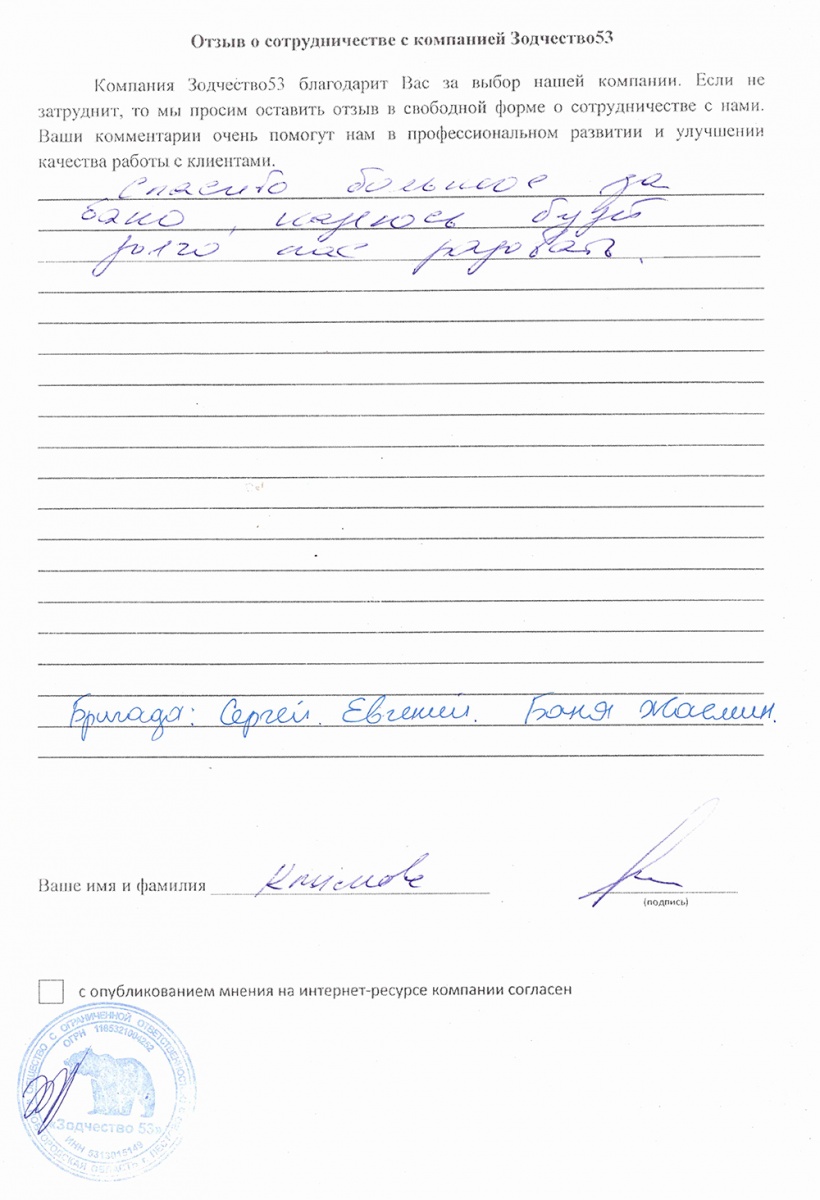 Отзыв о сотрудничестве с компанией Зодчество53
Компания Зодчество53 благодарит Вас за выбор нашей компании. Если не
затруднит, то мы просим оставить отзыв в свободной форме о сотрудничестве с нами.
Ваши комментарии очень помогут нам в профессиональном развитии и улучшении
качества работы с клиентами.
Спасибо большое за
баню, надеюсь будет
долго нас радовать.
Бригада: Сергей. Евгений. Баня Жасмин.
Ваше имя и фамилия
(подпись)
с опубликованием мнения на интернет-ресурсе компании согласен
ОБЩЕСТВО С ОГРАНИЧЕННОЙ ОТВЕТСТВЕННОСТЬЮ
ОГРН 1165321004252
«Зодчество 53»
ИНН 5313015149